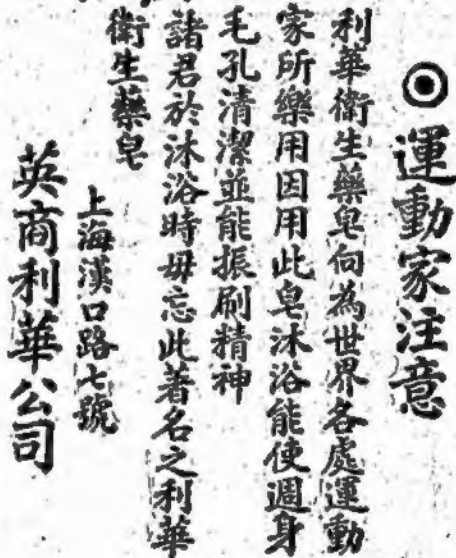 ◎運動家注意
利華衛生藥皂向為世界各處運動
家所樂用因用此皂沐浴能使週身
毛孔清潔並能振刷精神
諸君於沐浴時毋忘此著名之利華
衛生藥皂
上海漢口路七號
英商利華公司